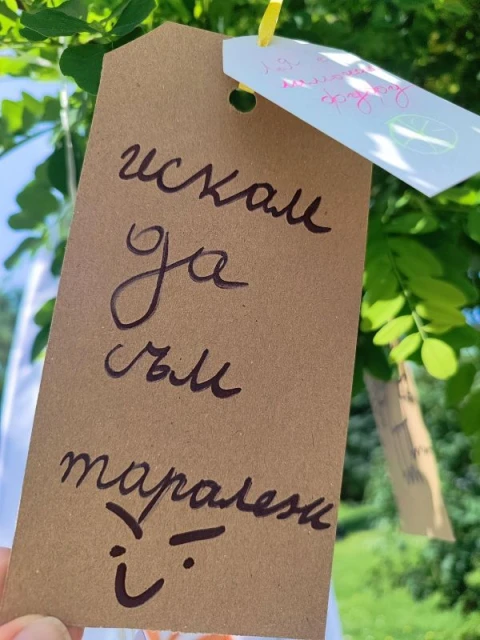 искам
да
съм
таралеж